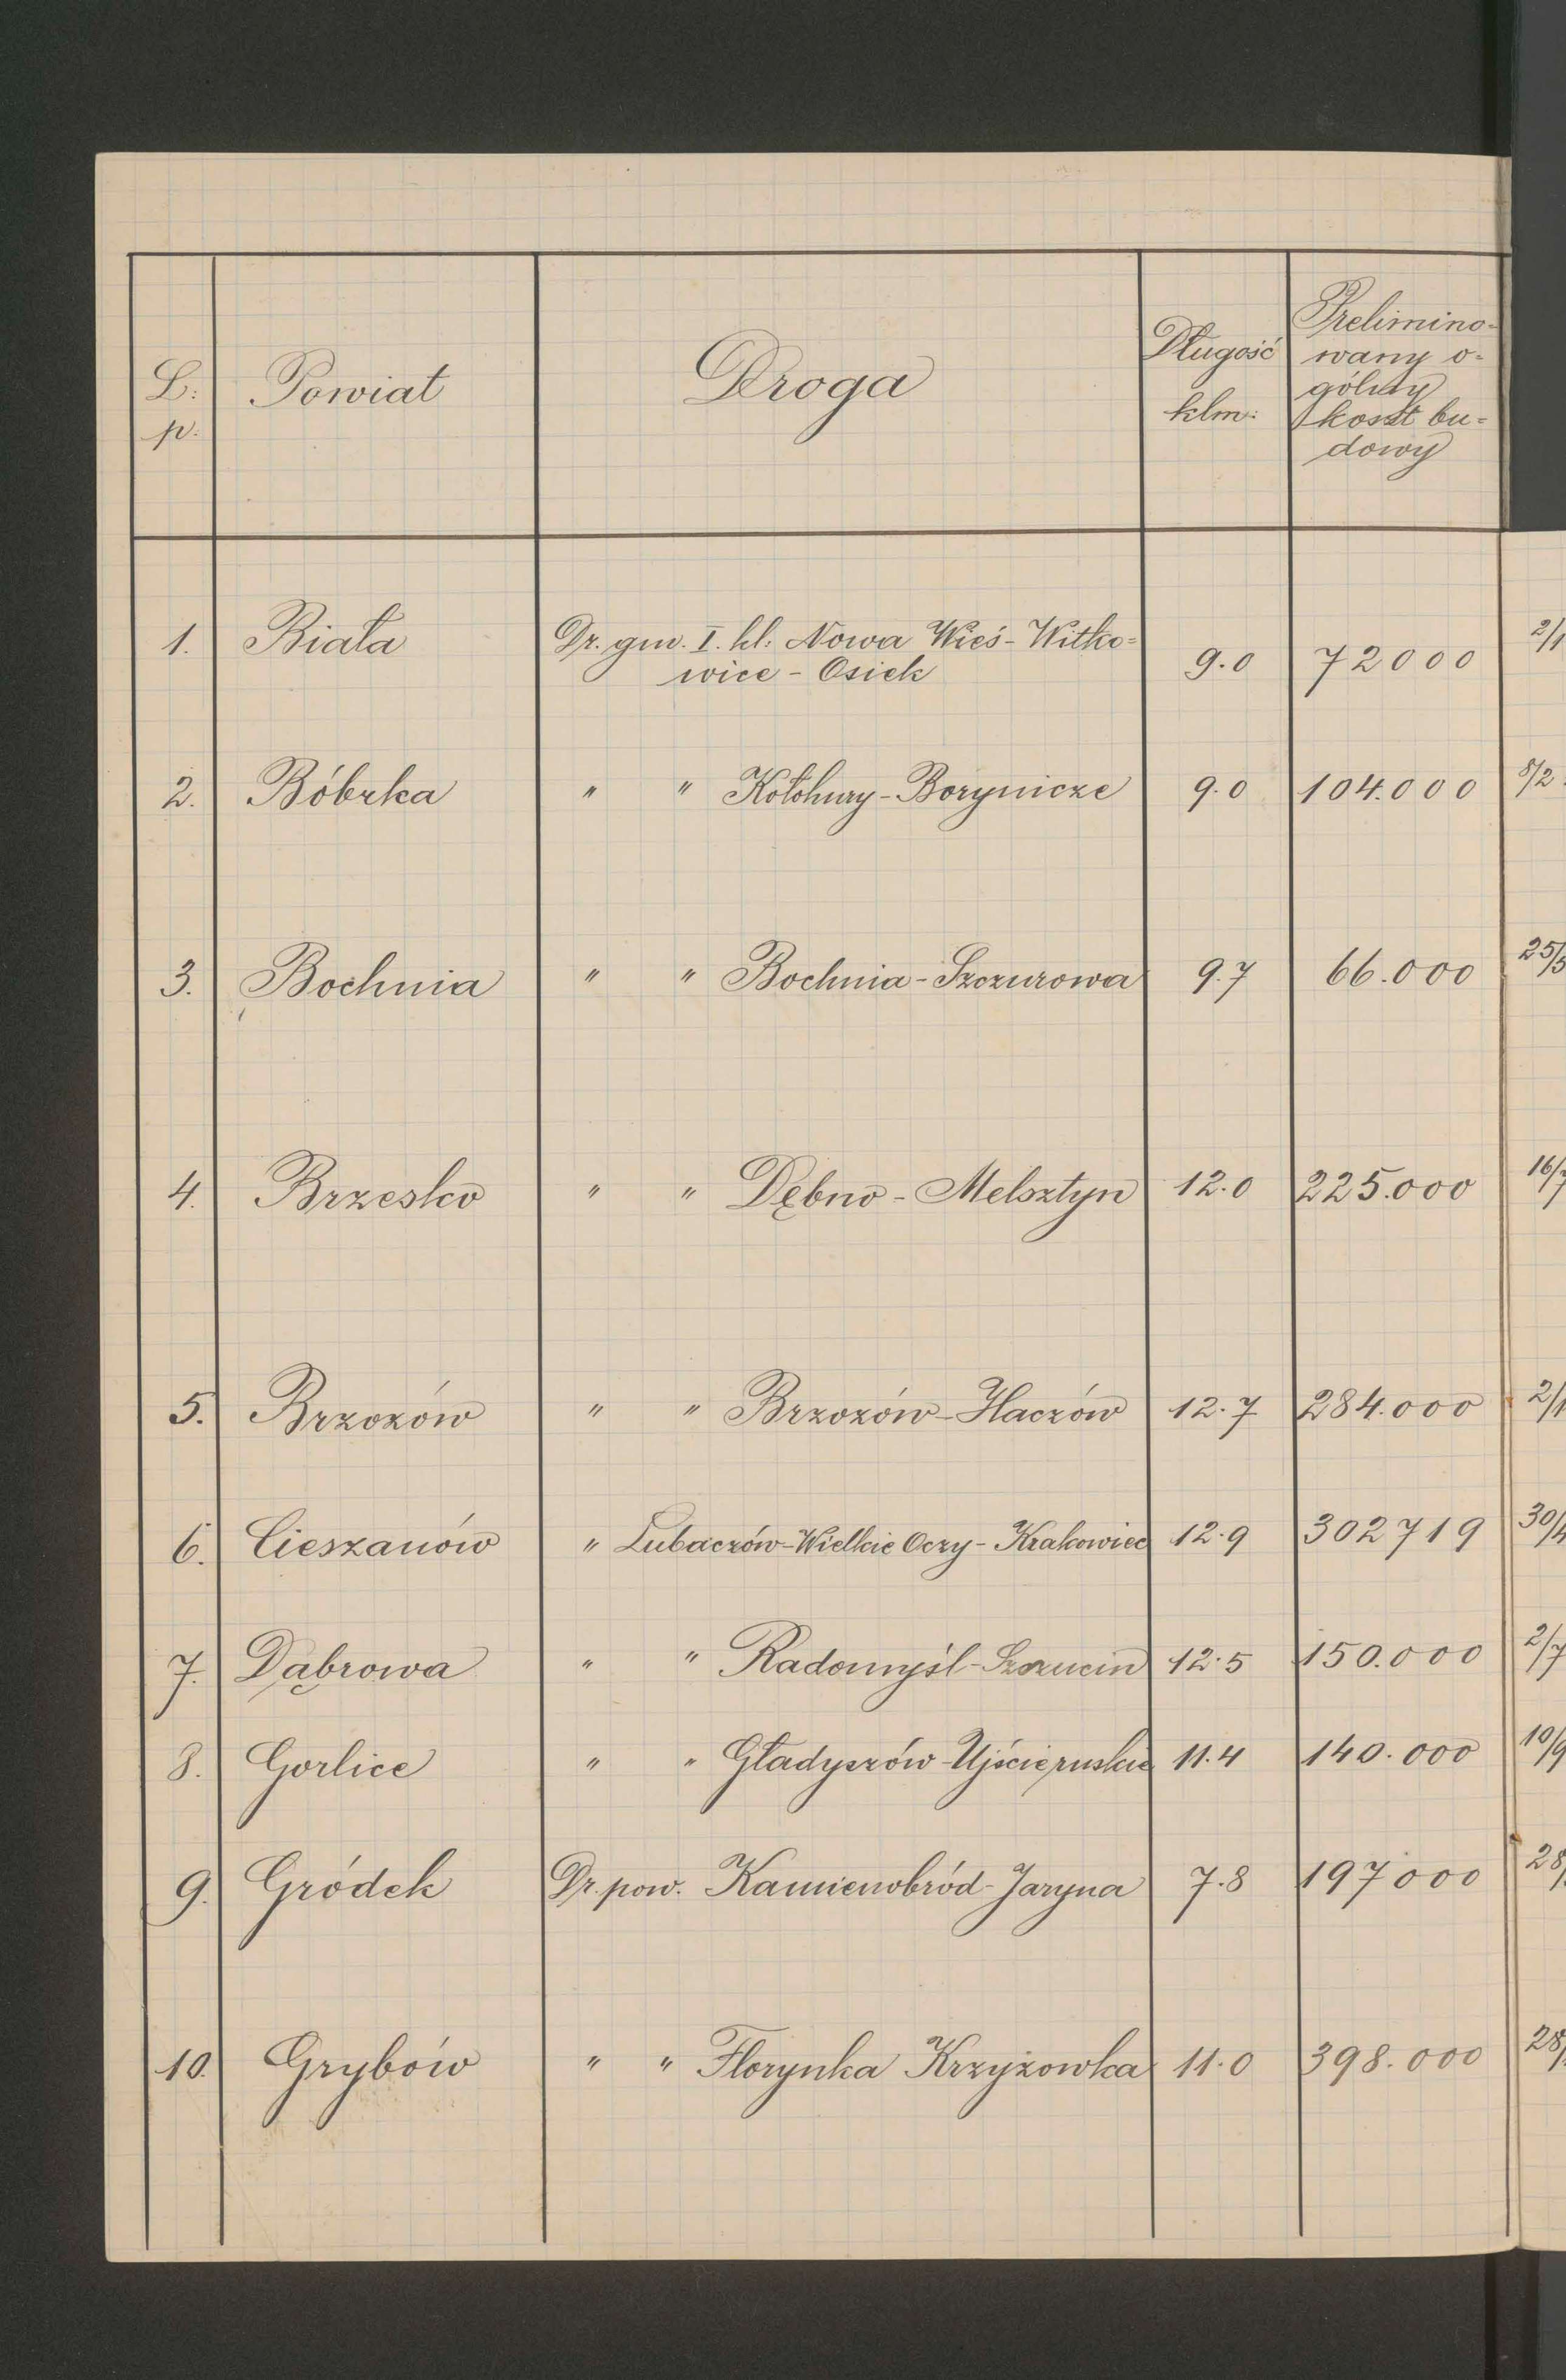 L: p: Powiat Droga Długość klm: Prelimino-
wany o-
gólny
koszt bu-
dowy
1. Biała Dr. gm. I. kl: Nowa Wieś - Witko-
wice - Osiek 9.0 72000
2. Bóbrka " " Kołohury - Borynicze 9.0 104.000
3. Bochnia " " Bochnia - Szczurowa 9.7 66.000
4. Brzesko " " Dębno - Melsztyn 12.0 225.000
5. Brzozów " " Brzozów - Haczów 12.7 284.000
6. Cieszanów " Lubaczów - Wielkie Oczy - Krakowiec 12.9 302719
7. Dąbrowa " " Radomyśl - Szczucin 12.5 150.000
8. Gorlice " " Gładyszów - Ujście ruskie 11.4 140.000
9. Gródek Dr. pow. Kamienobród - Jaryna 7.8 197000
10. Grybów " " Florynka Krzyżowka 11.0 398.000